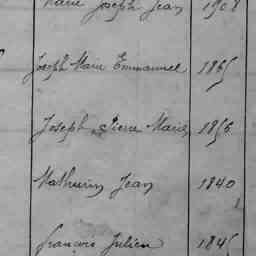 Marie Joseph Jean 1908
Joseph Marie Emmanuel 1865
Joseph Pierre Marie 1866
Mathurin Jean 1840
François Julien 1845